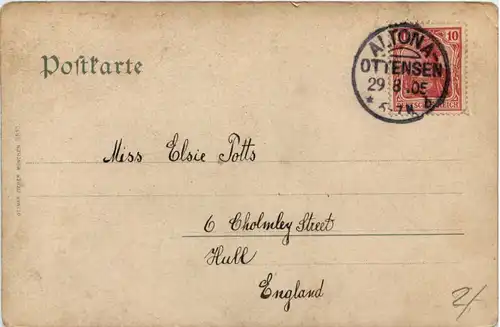 Postkarte
10
ALTONA-
OTTENSEN
29.8.05
Miss Elsie Potts
6 Cholmley Street
Hull
England
2/-